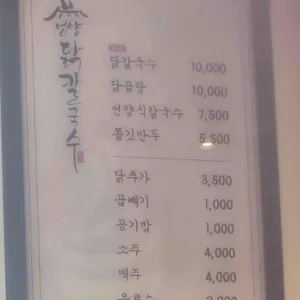 언양
닭칼국수
닭칼국수 10,000
닭곰탕 10,000
언양식칼국수 7,500
쫄깃만두 5,500
닭루가 3,500
곱빼기 1,000
공기밥 1,000
소주 4,000
맥주 4,000
음료수